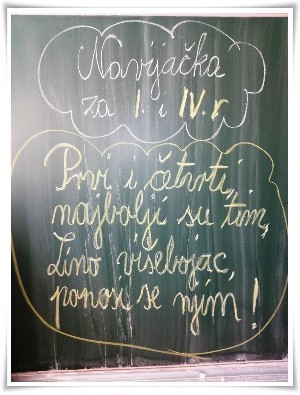 Navijačka
za I. i IV. r
Prvi i četvrti,
najbolji su tim,
Lino višebojac,
ponosi se njim!